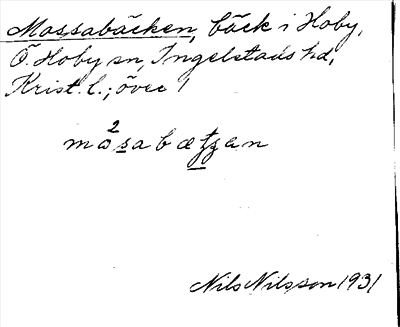 Mossabäcken, bäck i Hoby,
Ö. Hoby sn, Ingelstads hd,
Krist. l.; över 1
Nils Nilsson 1931